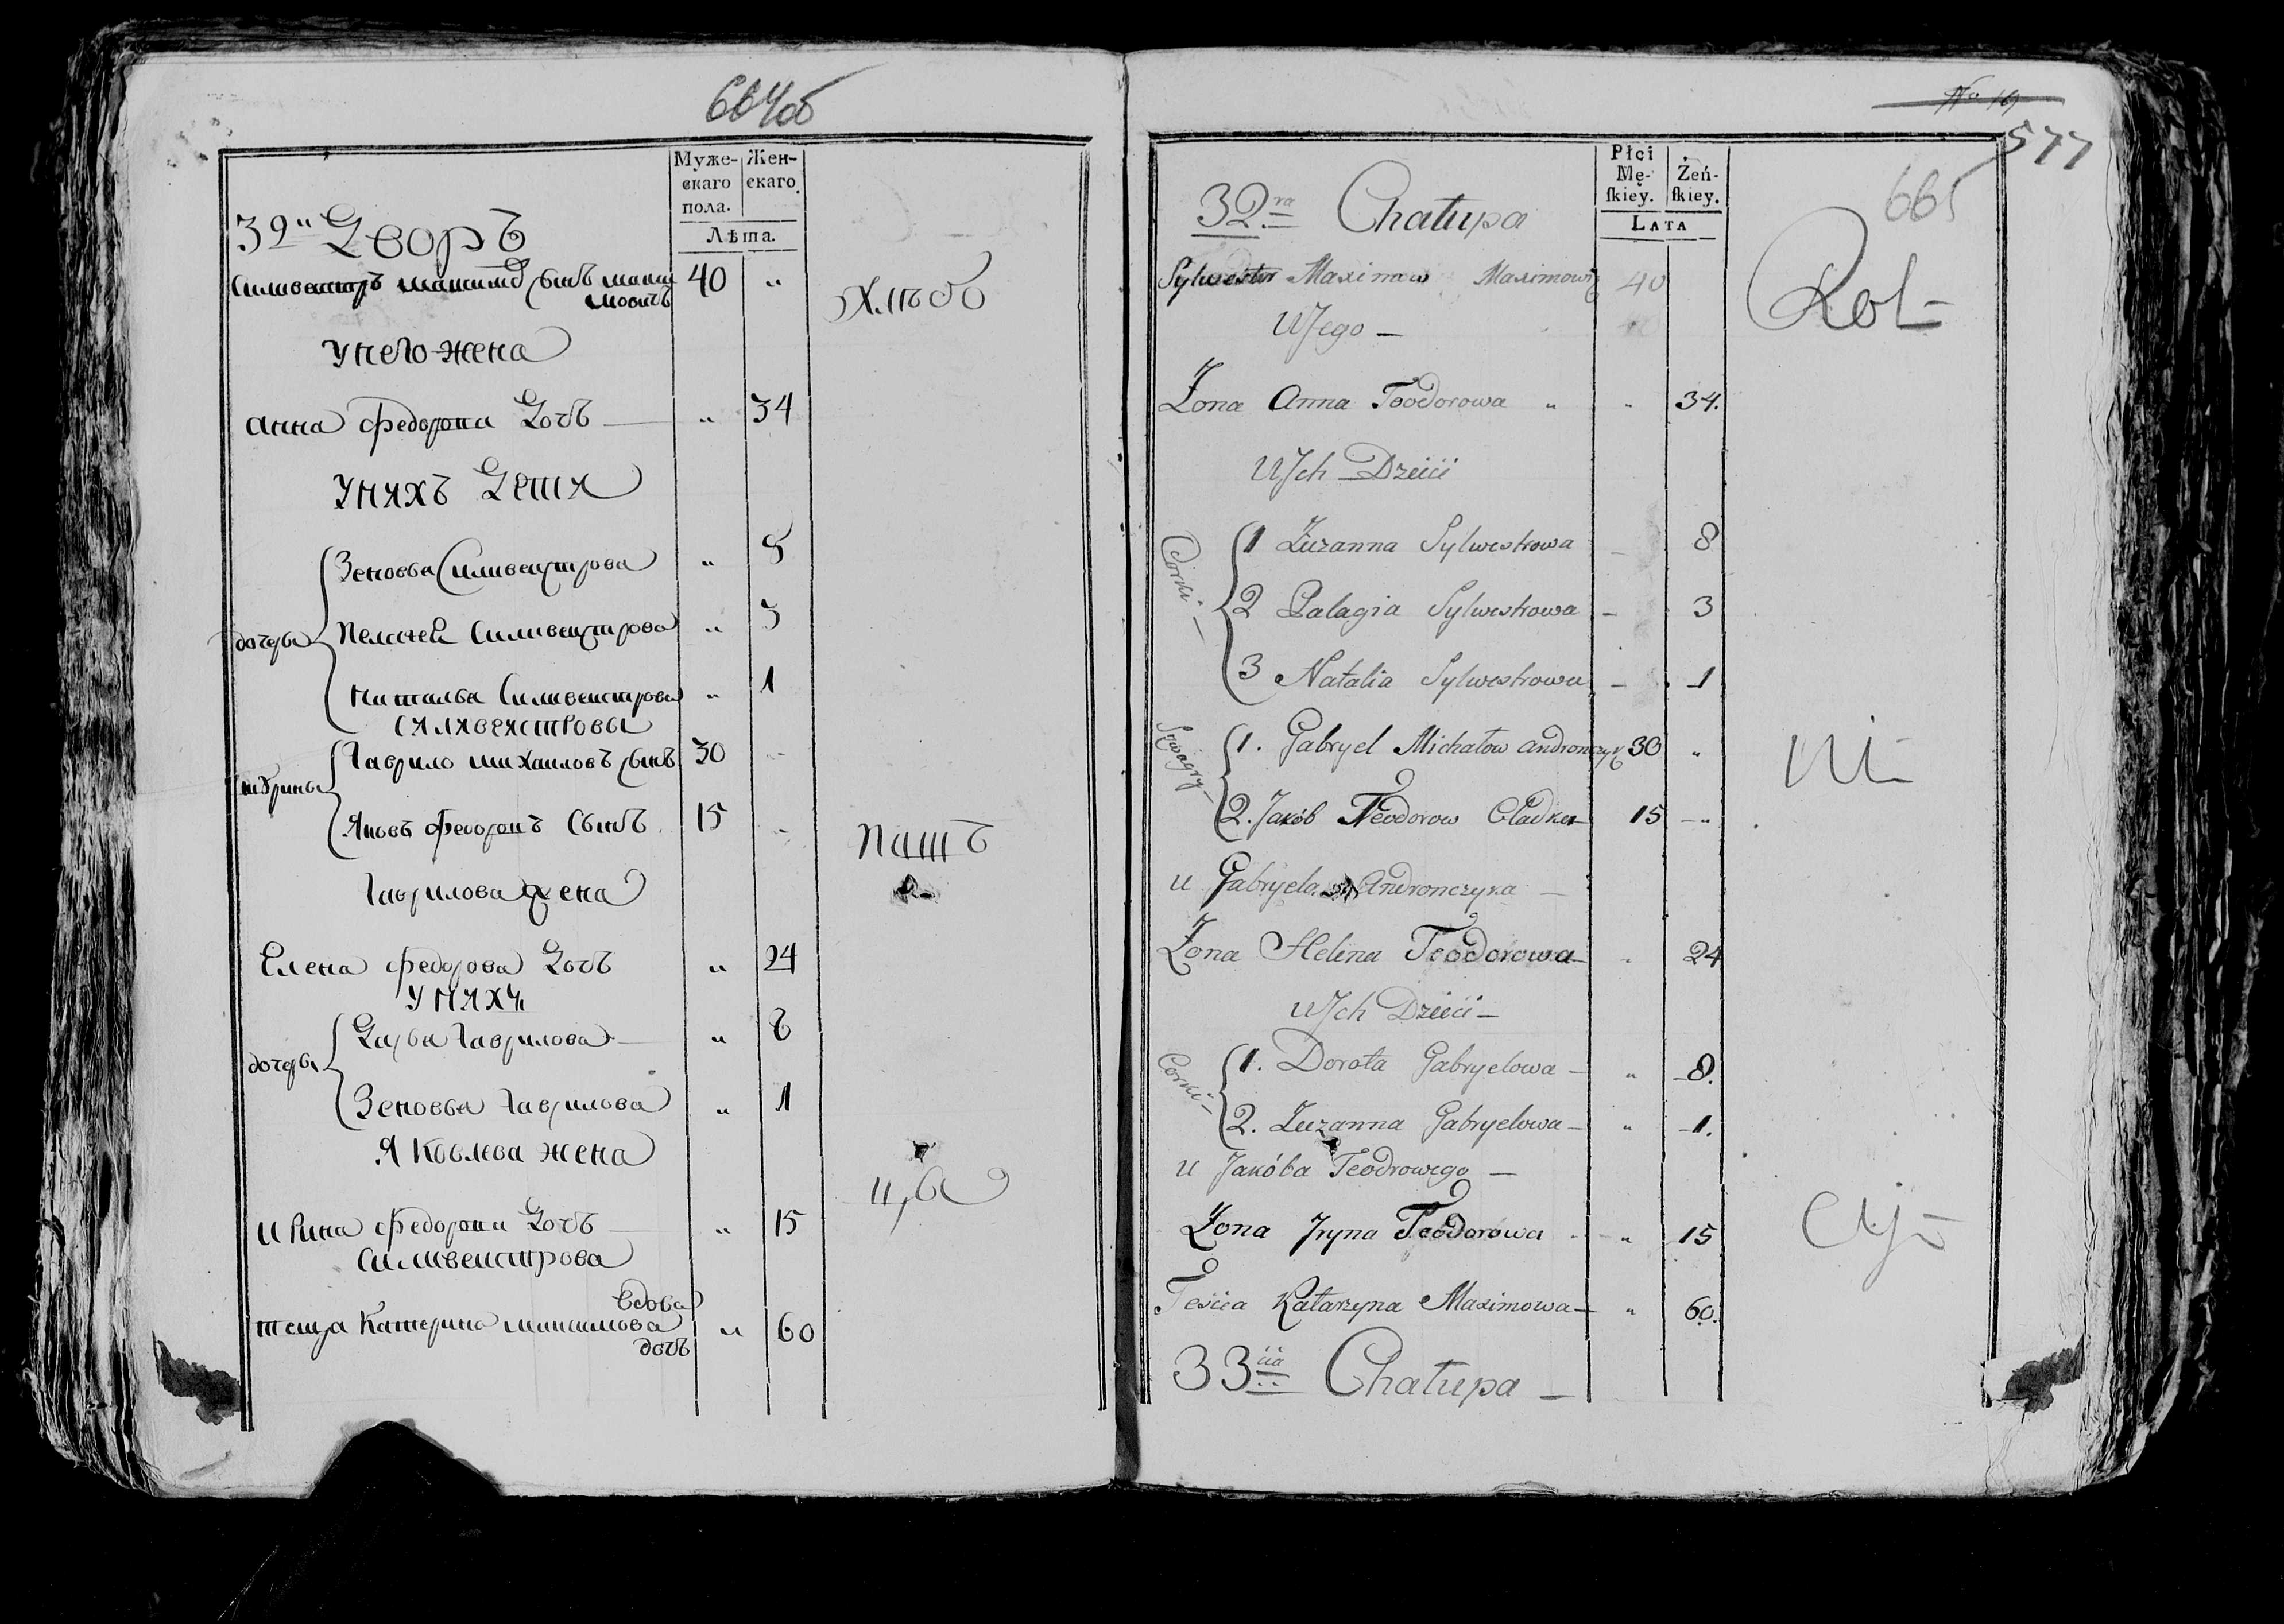 664об
Муже-
скаго
пола.
Жен-
скаго.
Лѣта.
32й Дворъ
Силивестръ Максимъ сынъ Макси
мовичъ 40 "
Хлѣбо
У него жена
Анна Федорова дочь " 34
У нихъ дети
дочеры
Зеновья Силивестрова " 8
Пелагея Силивестрова " 3
Наталья Силивестрова " 1
Силивестровы
шурины
Гаврило Михаиловъ сынъ 30 "
Яковъ Федоровъ сынъ 15 "
пашъ
Гаврилова жена
Елена Федорова дочь " 24
У нихъ
дочеры
Дарья Гаврилова " 8
Зеновья Гаврилова " 1
Яковлева жена
Ирина Федорова дочь " 15
Силивестрова
вдова
теща Катерина Максимова " 60
дочь
№ 19
577
665
Płci
Mę-
skiey.
Żeń-
skiey.
LATA
32ra Chałupa
Sylwester Maximow Maximowicz 40
Rol-
U Jego —
Żona Anna Teodorowa " " 34.
U Jch Dzieci
Corki —
1 Zuzanna Sylwestrowa — 8
2 Palagia Sylwestrowa — 3
3 Natalia Sylwestrowa — 1
Szwagry —
1. Gabryel Michałow Andronczyk 30 "
ni-
2. Jakób Teodorow Gładka 15 — "
u Gabryela Andronczyka —
Żona Helena Teodorowa " 24
U Jch Dzieci —
Corki —
1. Dorota Gabryelowa — " 8.
2. Zuzanna Gabryelowa — " 1.
u Jakóba Teodrowego —
Żona Jryna Teodorowa — " 15
cy-
Teścia Katarzyna Maximowa — " 60.
33cia Chałupa —